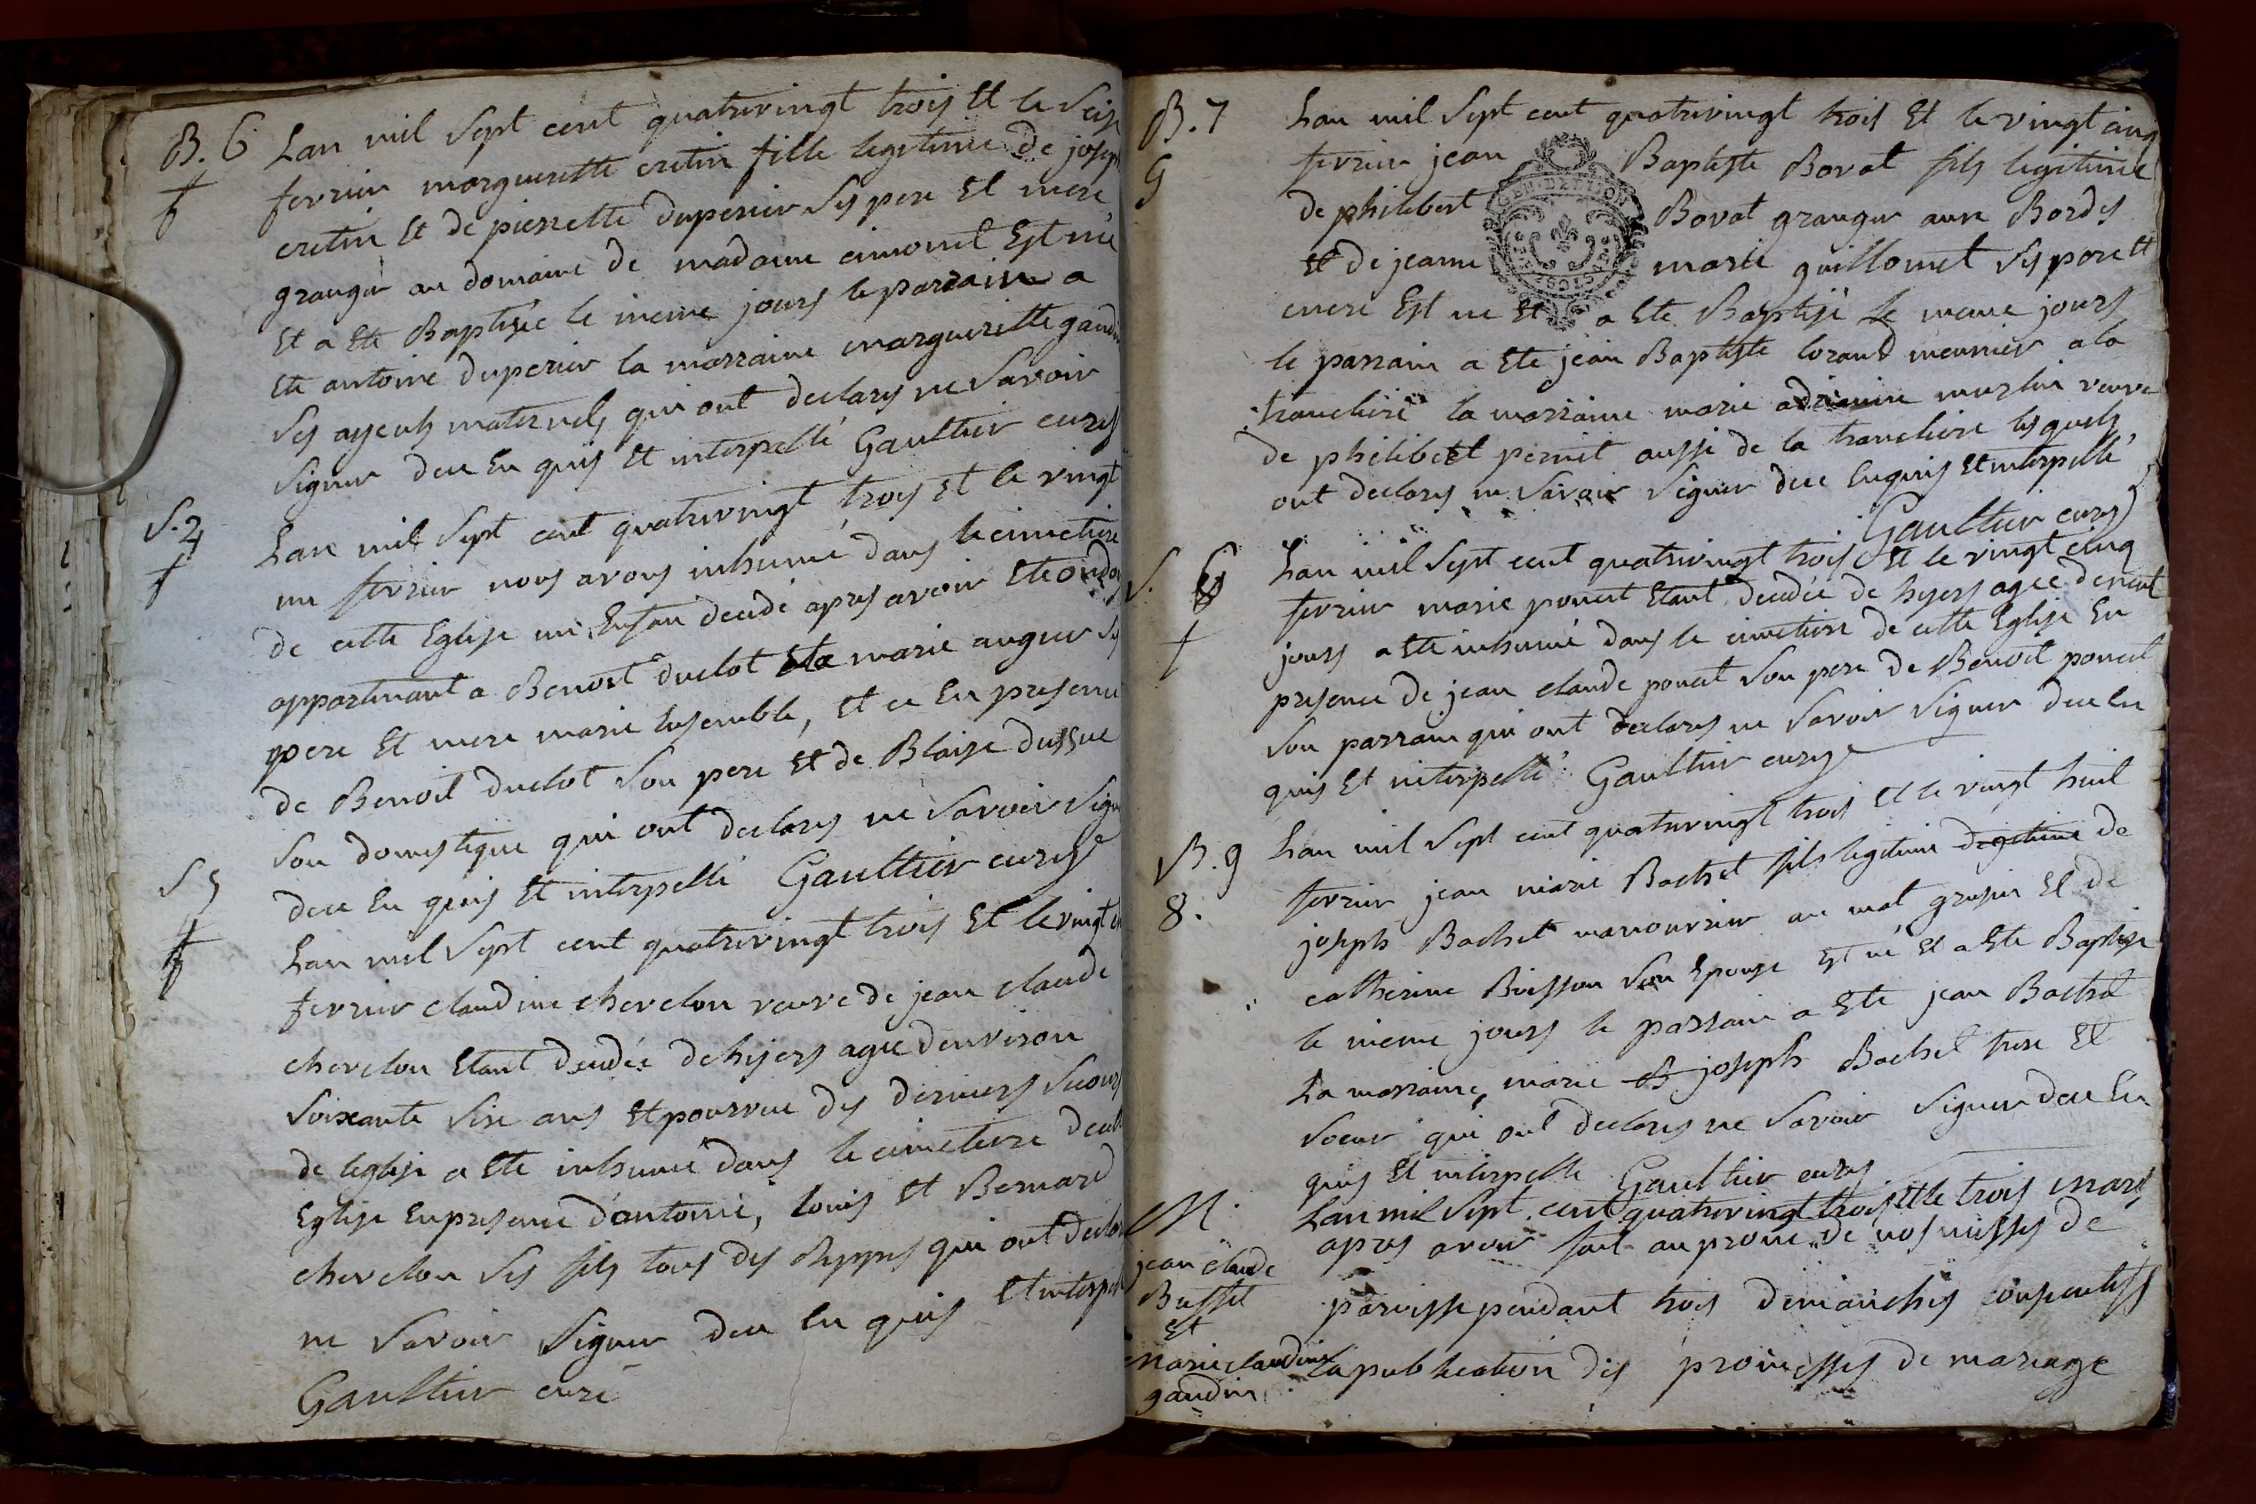 B. 6 Lan mil Sept cent quatrevingt trois Et le Seize
fevrier marguerette cretin fille legitime de joseph
cretin Et de pierrette duperier Ses pere Et mere
granger au domaine de madame cimonet Est née
Et a Ete Baptisée le meme jours le parrain a
Ete antoine duperier la marraine marguerette gaudin
Ses ayeuls maternels qui ont declarés ne Savoir
Signer deu En quis Et interpellé Gaultier curé
S. 4 Lan mil Sept cent quatrevingt trois Et le vingt
un fevrier nous avons inhumé dans le cimetiere
de cette Eglise un Enfan decedé apres avoir Ete ondoy
appartenant a Benoit duclot Et a marie auguer Ses
pere Et mere marie Ensemble, Et ce En presence
de Benoit duclot Son pere Et de Blaise
Son domestique qui ont declarés ne Savoir Signer
deu En quis Et interpellé Gaultier curé
S 5
Lan mil Sept cent quatrevingt trois Et le vingt
fevrier claudine chevelon veuve de jean claude
chevelon Etant decedée dehijers agee denviron
Soixante Six ans Et pourvue des derniers Secours
de leglise a Ete inhumé dans le cimetiere de cette
Eglise En presence d'antoine, louis Et Bernard
chevelon Ses fils tous des qui ont declarés
ne Savoir Signer deu En quis Et interpellé
Gaultier curé
B. 7 Lan mil Sept cent quatrevingt trois Et le vingt cinq
G fevrier jean Baptiste Bovat fils legitime
de philibert Bovat granger aux Bordes
Et de jeanne marie guillomet Ses pere Et
mere Est ne Et a Ete Baptisé Le meme jours
le parrain a Ete jean Baptiste lorand meunier a la
trancliere la marraine marie veuve
de philibert pernet aussi de la trancliere lesquels
ont declarés ne Savoir Signer deu Enquis Et interpellé
Gaultier curé
S. 6 Lan mil Sept cent quatrevingt trois Et le vingt cinq
fevrier marie poncet Etant decedée de hyers agee de neuf
jours a Ete inhumé dans le cimetiere de cette Eglise En
presence de jean claude poncet Son pere de Benoit poncet
Son parrain qui ont declarés ne Savoir Signer deu En
quis Et interpellé Gaultier curé
B. 9 Lan mil Sept cent quatrevingt trois Et le vingt huit
8. fevrier jean marie Bachet fils legitime degitime de
joseph Bachet manouvrier au mat Et de
catherine Buisson Son Epouse Est né Et a Ete Baptisé
le meme jours le parrain a Ete jean Bachet
La marraine marie B joseph Bachet frere Et
Soeur qui ont declarés ne Savoir Signer deu En
quis Et interpellé Gaultier curé
M. Lan mil Sept cent quatrevingt trois Et le trois mars
apres avoir fait au prone de nos messes de
jean claude
Buffet
paroisse pendant trois dimanches consecutifs
Et
marie claudine
gaudin
la publication des promesses de mariage